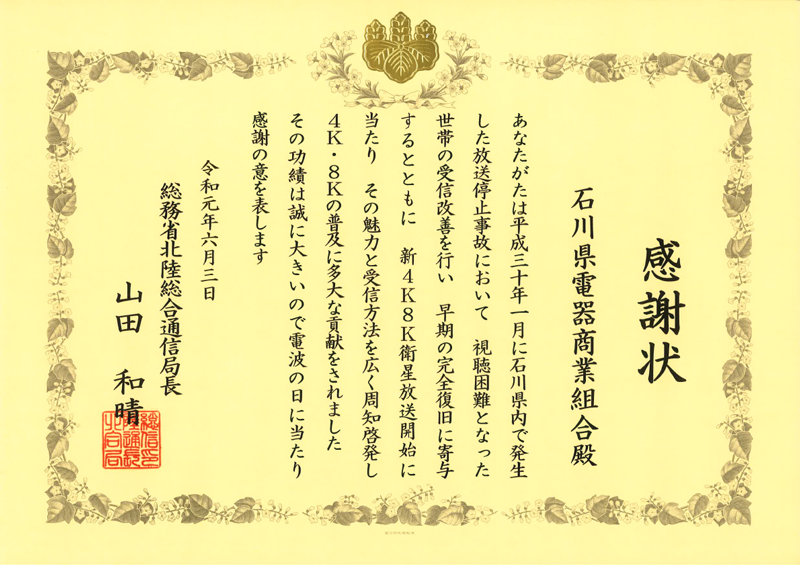 感謝状
石川県電器商業組合殿
あなたがたは平成三十年一月に石川県内で発生
した放送停止事故において 視聴困難となった
世帯の受信改善を行い 早期の完全復旧に寄与
するとともに 新4K8K衛星放送開始に
当たり その魅力と受信方法を広く周知啓発し
4K・8Kの普及に多大な貢献をされました
その功績は誠に大きいので電波の日に当たり
感謝の意を表します
令和元年六月三日
総務省北陸総合通信局長
山田 和晴